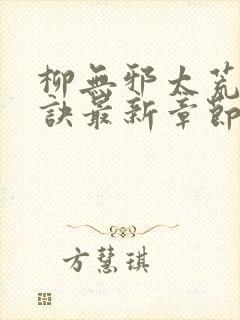 柳無邪太荒
訣最新章節
方慧琪